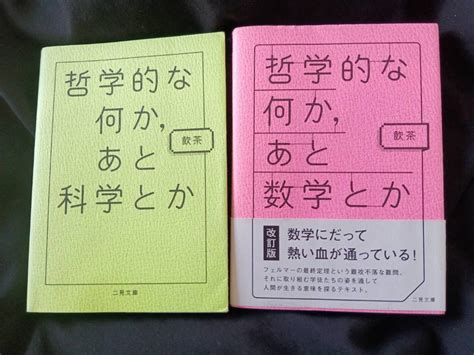 哲学的な
何か,
あと
科学とか
飲茶
二見文庫
哲学的な
何か,
あと
数学とか
飲茶
改訂版
数学にだって
熱い血が通っている!
フェルマーの最終定理という最攻不落な難問、
それに取り組む学徒たちの姿を通して
人間が生きる意味を探るテキスト。
二見文庫